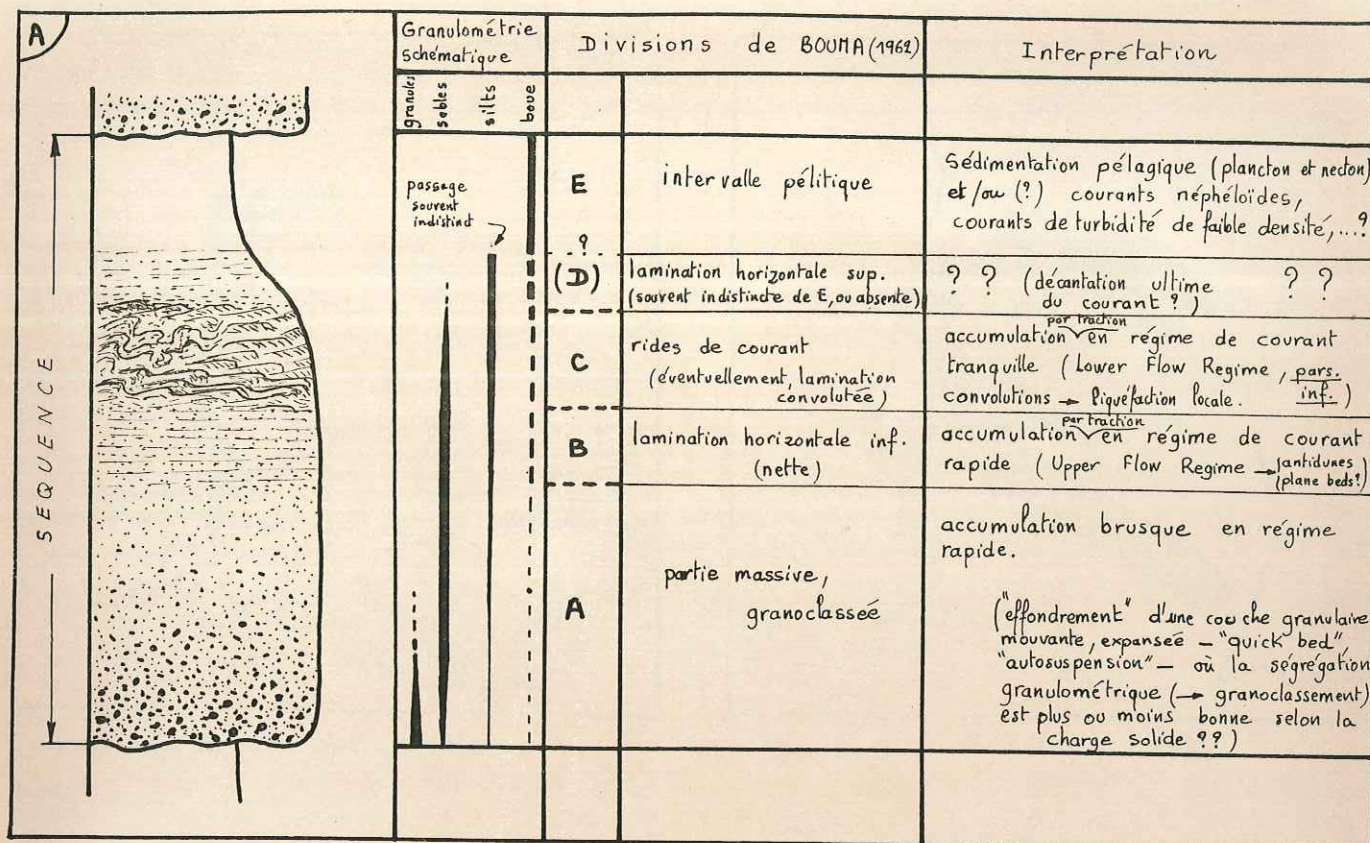 A
Granulométrie
schématique
Divisions de BOUMA (1962)
Interprétation
granules
sables
silts
boue
SEQUENCE
passage
souvent
indistinct
E
?
intervalle pélitique
Sédimentation pélagique (plancton et necton)
et/ou (?) courants néphéloïdes,
courants de turbidité de faible densité,...?
(D)
lamination horizontale sup.
(souvent indistincte de E, ou absente)
? ? (décantation ultime ? ?
du courant ?)
C
rides de courant
(éventuellement, lamination
convolutée)
par traction
accumulation en régime de courant
tranquille (Lower Flow Regime, pars.
convolutions → liquéfaction locale. inf.)
B
lamination horizontale inf.
(nette)
par traction
accumulation en régime de courant
rapide (Upper Flow Regime → (antidunes)
(plane beds?)
A
partie massive,
granoclasseé
accumulation brusque en régime
rapide.
("effondrement" d'une couche granulaire
mouvante, expanseé – "quick bed",
"autosuspension" – où la ségrégation
granulométrique (→ granoclassement)
est plus ou moins bonne selon la
charge solide ??)